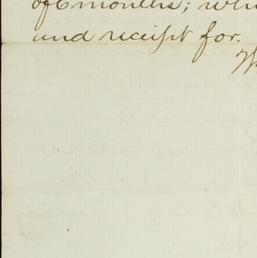 of 6 months; whi
and receipt for.